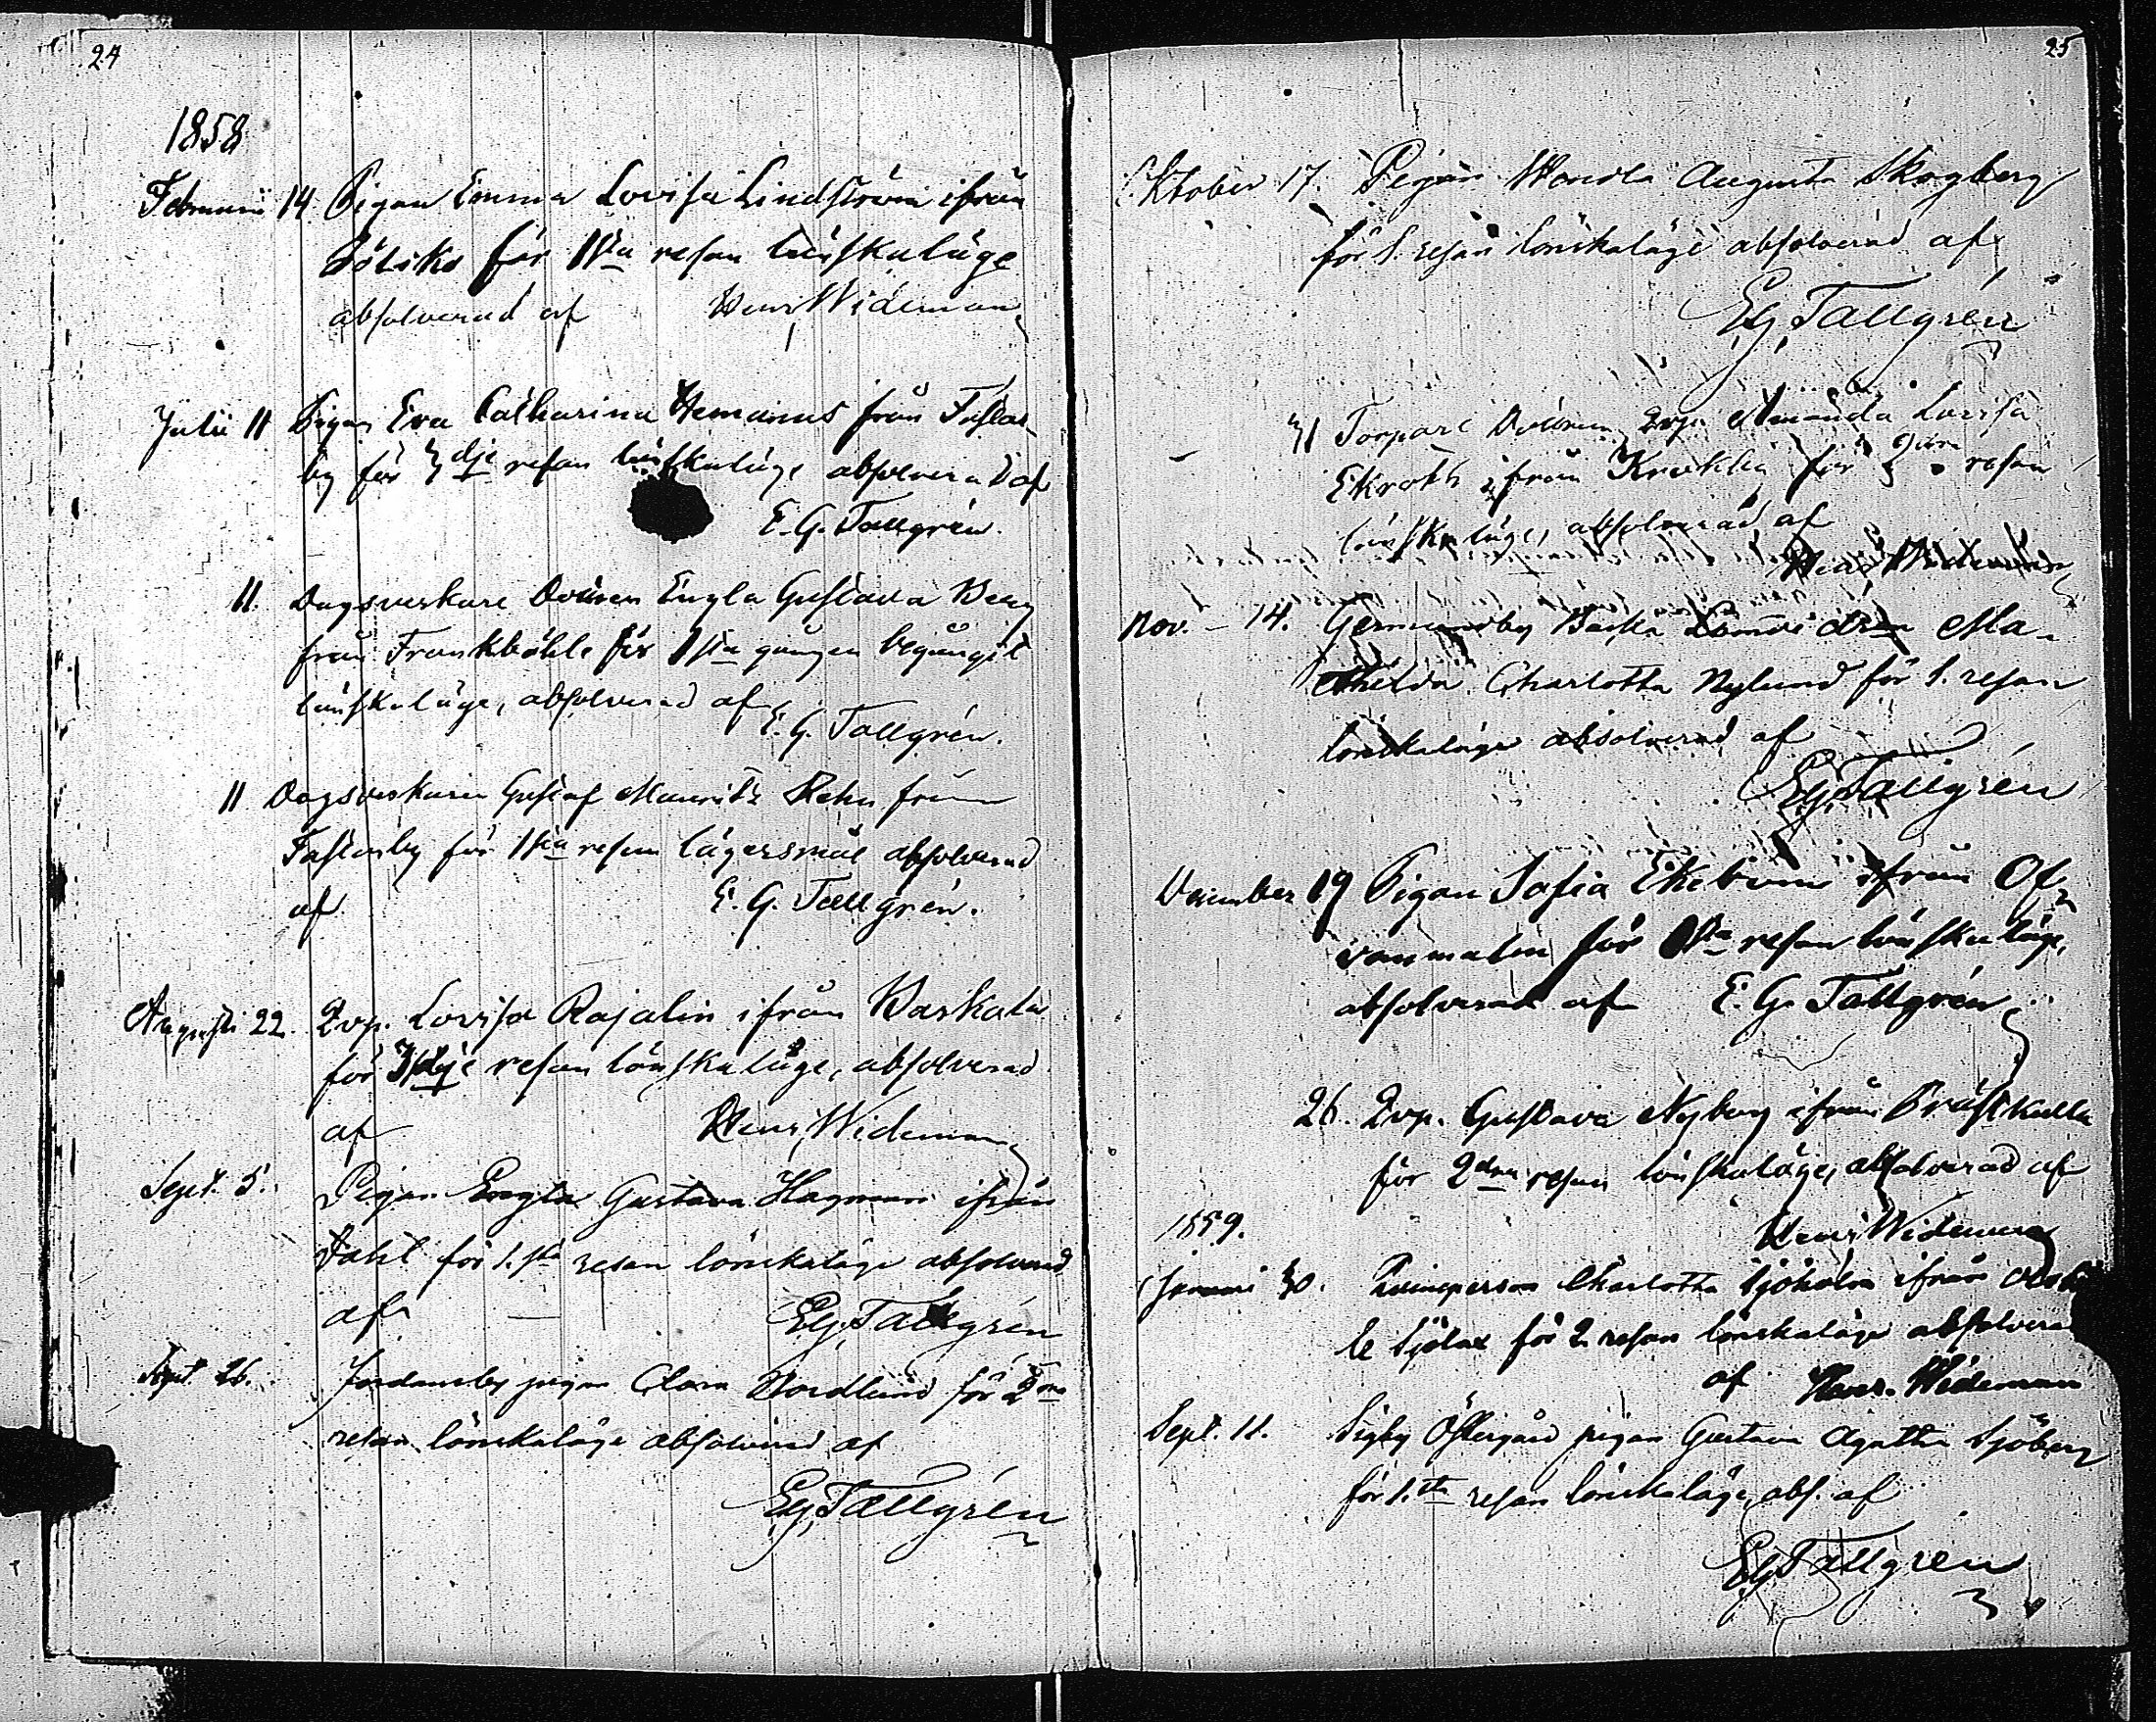 24
1858
Februarii 14. Pigan Emma Lovisa Lindström ifrån
för 1sta resan lönskaläge
absolverad af Henr. Wideman
Julii 11 Pigan Eva Catharina Hemanus från Fastar-
by för 3dje resan lönskaläge absolverad af
E. G. Tallgrén.
11. Dagsverkare Enkan Engla Gustava Berg
från Frankböhle för 1sta gången begånget
lönskaläge, absolverad af
E. G. Tallgrén.
11 Dagsverkaren Gustaf Mauritz Rehn från
Fastarby för 1sta resan lägersmål absolverad
af E. G. Tallgrén.
Augusti 22. Qvp. Lovisa Rajalin ifrån Baskala
för 3dje resan lönskaläge, absolverad
af Henr. Wideman
Sept. 5. Pigan Engla Gustava Hagman ifrån
för 1.sta resan lönskaläge absolverad
af EG Tallgrén
Sept. 26. Jordansby pigan Clara Nordlund för 2dra
resan lönskaläge absolverad af
EG Tallgrén
25
Oktober 17. Pigan Wendla Augusta Skogberg
för 1. resan lönskaläge absolverad af
EG Tallgrén
31 Torpare Amanda Lovisa
Ekroth ifrån för resan
lönskaläge, absolverad af
Henr. Wideman
Nov. - 14. Germundby Ma-
thilda Charlotta Nylund för 1. resan
lönskaläge absolverad af
EG Tallgrén
December 19 Pigan Sofia Ekebom ifrån Of-
vanmalm för 1sta resan lönskaläge,
absolverad af E. G. Tallgrén
26. Qvp. Gustava Nyberg ifrån Prästkulla
för 2dra resan lönskaläge, absolverad af
1859. Henr. Wideman
Januari 30. Qvinsperson Charlotta Sjöholm ifrån
för 2. resan lönskaläge absolverad
af Henr. Wideman
Sept. 11. Sigby Östergård pigan Gustava Agatha Sjöberg
för 1.sta resan lönskaläge, abs. af
EG Tallgrén